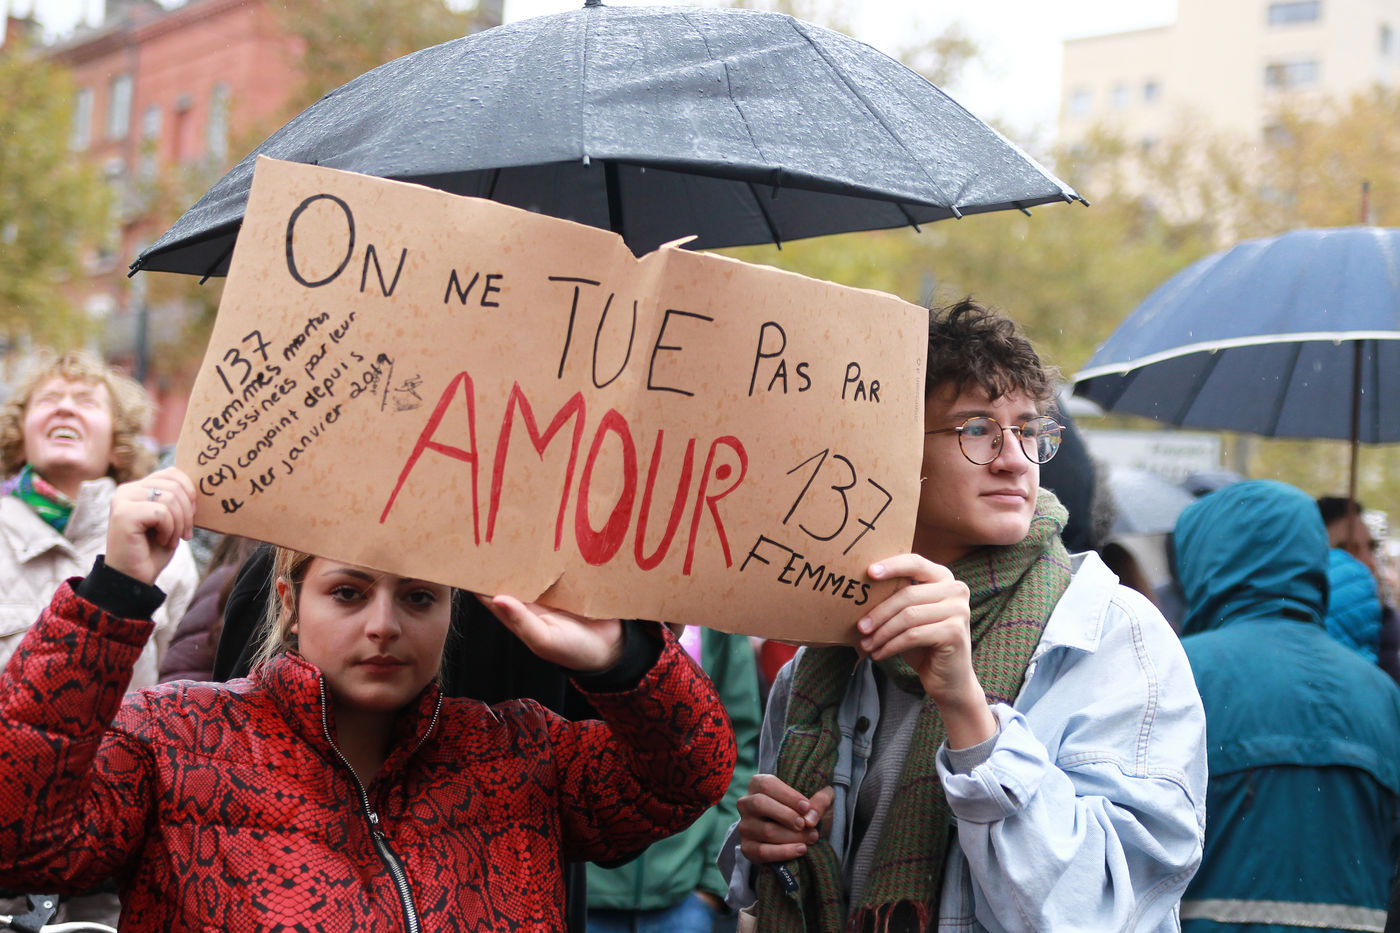 ON NE TUE PAS PAR
AMOUR
137
FEMMES
137
Femmes mortes
assassinées par leur
(ex) conjoint depuis
le 1er janvier 2019